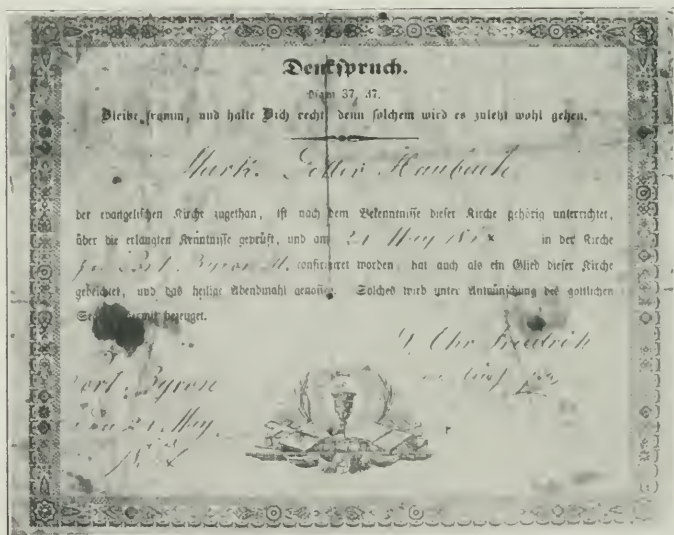 Denkspruch.
Psalm 37, 37.
Bleibe fromm, und halte Dich recht, denn solchem wird es zuletzt wohl gehen.
der evangelischen Kirche zugethan, ist nach dem Bekenntnisse dieser Kirche gehörig unterrichtet,
über die erlangten Kenntnisse geprüft, und am 21 May in der Kirche
Port Byron confirmiret worden, hat auch als ein Glied dieser Kirche
gebeichtet, und das heilige Abendmahl genoßen. Solches wird unter Anwünschung des göttlichen
bezeuget.
Chr Friedrich
Port Byron
21 May